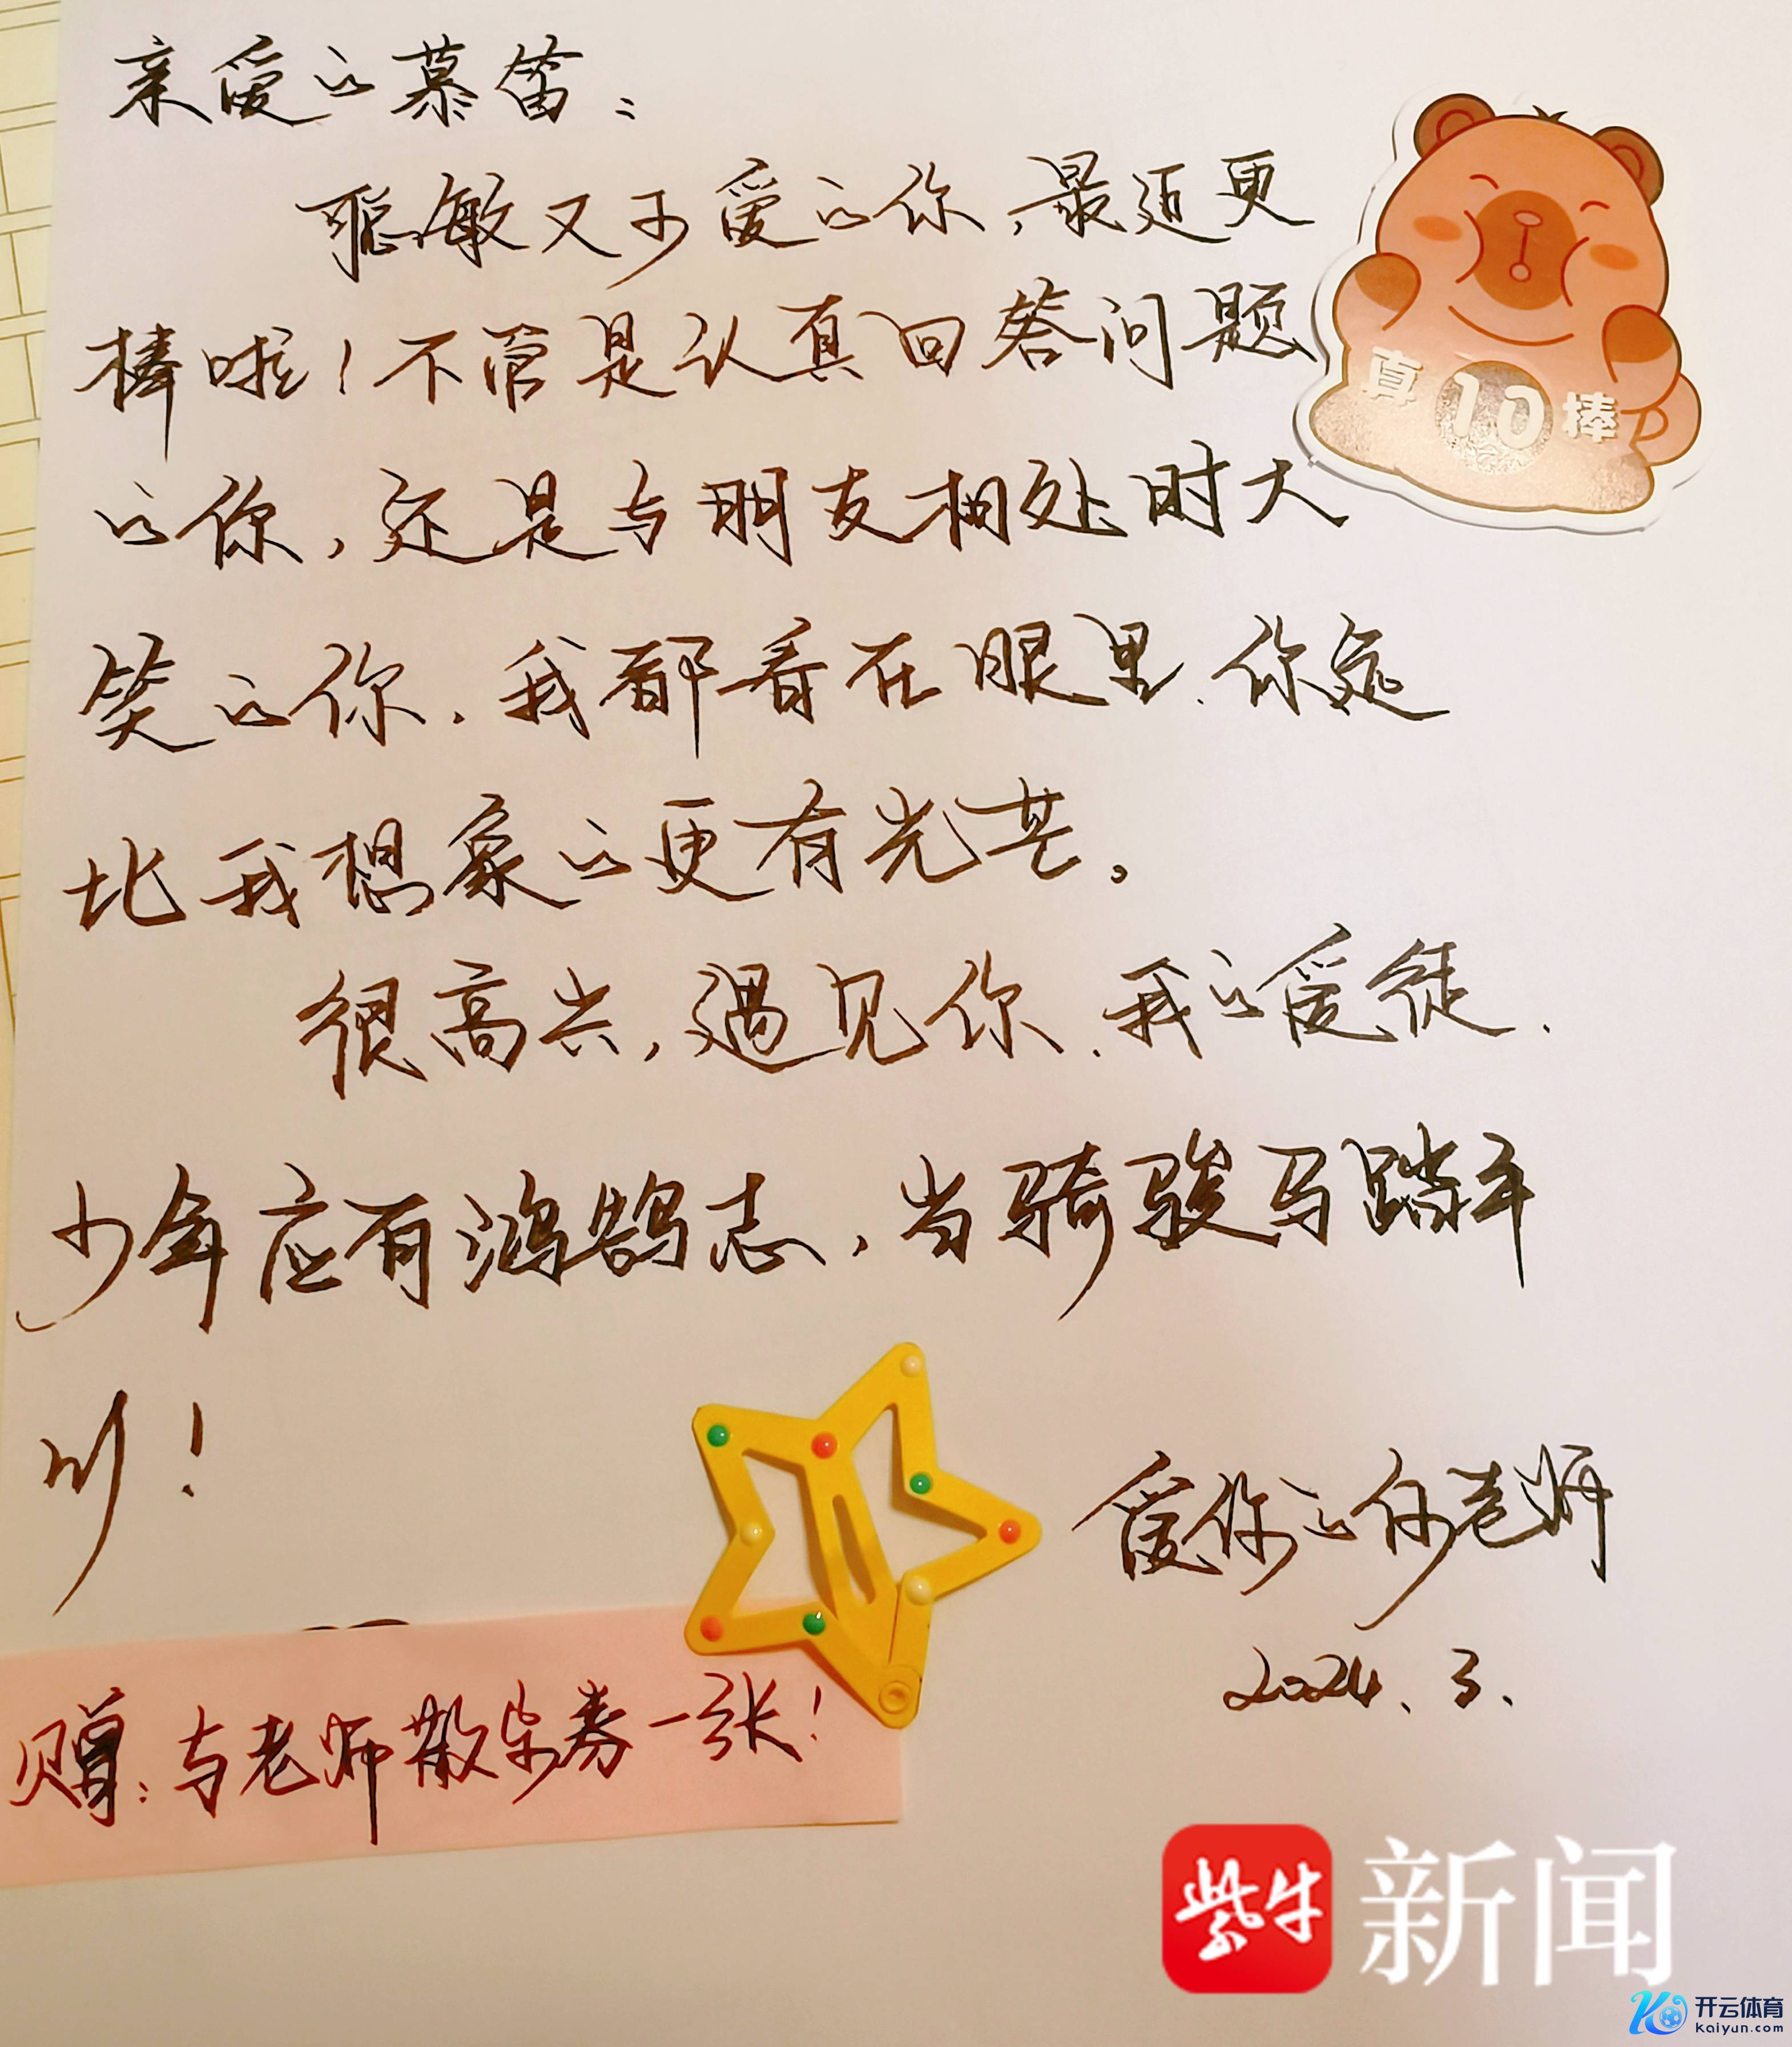 亲爱的慕笛：
聪敏又可爱的你，最近更
棒啦！不管是认真回答问题
的你，还是与朋友相处时大
笑的你，我都看在眼里，你远
比我想象的更有光芒。
很高兴，遇见你，我的爱徒，
少年应有鸿鹄志，当骑骏马踏平
川！
爱你的何老师
2024.3.
赠：与老师散步券一张！
真10棒
紫牛新闻
开云体育
kaiyun.com